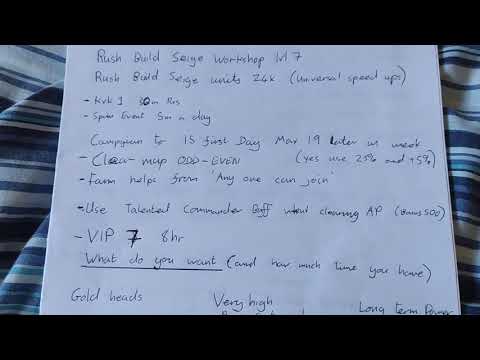 Rush Build Seige Workshop lvl 7
Rush Build Seige units 24k (Universal speed ups)
- KvK 1 30m Rss
- Spin Event 5m a day
Campaign to 15 first Day Max 19 later in week
- Clear map ODD-EVEN (Yes use 25% and +5%)
- Farm helps from 'Any one can join'
- Use Talented Commander Buff when clearing AP (Barbs 500)
- VIP 7 8hr
What do you want (and how much time you have)
Gold heads Very high Long term Power